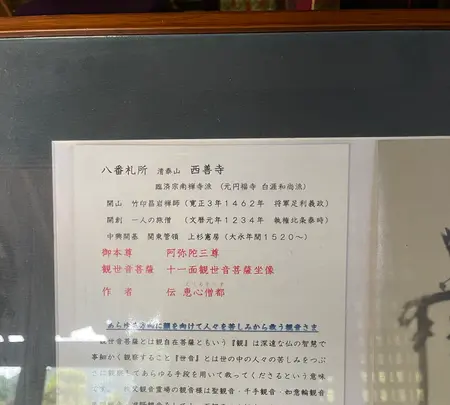 八番札所 清泰山 西善寺
臨済宗南禅寺派 (元円福寺 白涯和尚派)
開山 竹印昌岩禅師 (寛正3年1462年 将軍足利義政)
開創 一人の旅僧 (文暦元年1234年 執権北条泰時)
中興開基 関東管領 上杉憲房 (大永年間1520〜)
御本尊 阿弥陀三尊
観世音菩薩 十一面観世音菩薩坐像
作者 伝 恵心僧都
あらゆる方向に顔を向けて人々を苦しみから救う観音さま
観世音菩薩とは観自在菩薩ともいい『観』は深遠な仏の智慧で
事細かく観察すること『世音』とは世の中の人々の苦しみをつぶ
に観察してあらゆる手段を用いて救ってくださるという意味
です。 秩父観音霊場の観音種は聖観音・千手観音・如意輪観音